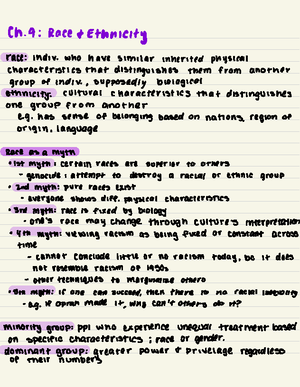 Ch.9: Race & Ethnicity
race: indiv. who have similar inherited physical
characteristics that distinguishes them from another
group of indiv., supposedly biological
ethnicity: cultural characteristics that distinguishes
one group from another
e.g. has sense of belonging based on nations, region of
origin, language
Race as a myth
• 1st myth: certain races are superior to others
- genocide: attempt to destroy a racial or ethnic group
• 2nd myth: pure races exist
- everyone shows diff. physical characteristics
• 3rd myth: race is fixed by biology
- one's race may change through culture's interpretation
• 4th myth: viewing racism as being fixed or constant across
time
- cannot conclude little or no racism today, bc it does
not resemble racism of 1950s
- other techniques to marginalize others
• 5th myth: if one can succeed, then there is no racial
- e.g. if Oprah made it, why can't others do it?
minority group: ppl who experience unequal treatment based
on specific characteristics; race or gender.
dominant group: greater power & privelage regardless
of their numbers